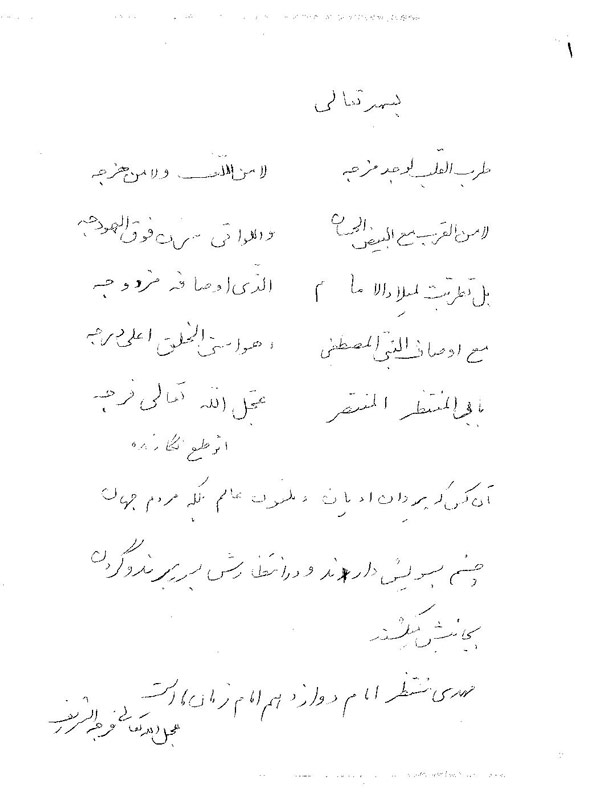 ۱
بسمه تعالی
طرب القلب لوجد مزجه لا من اللّف ولا من هزجه
لا من القرب مع البیض الحسان واللواتی سرن فوق الهودجه
بل تطربت لمیلاد الاما م الّذی اوصافه مزدوجه
مع اوصاف النبیّ المصطفی و هو اسنی الخلق اعلی درجه
بابی المنتظر المنتصر عجّل اللّه تعالی فرجه
از طبع نگارنده
آن کس که پیروان ادیان و ملّیون عالم بلکه مردم جهان
چشم بسویش دارند و در انتظارش بسر برند و گردن
بجانبش میکشند
مهدی منتظر امام دوازدهم امام زمان ما است
عجل اللّه تعالی فرجه الشریف